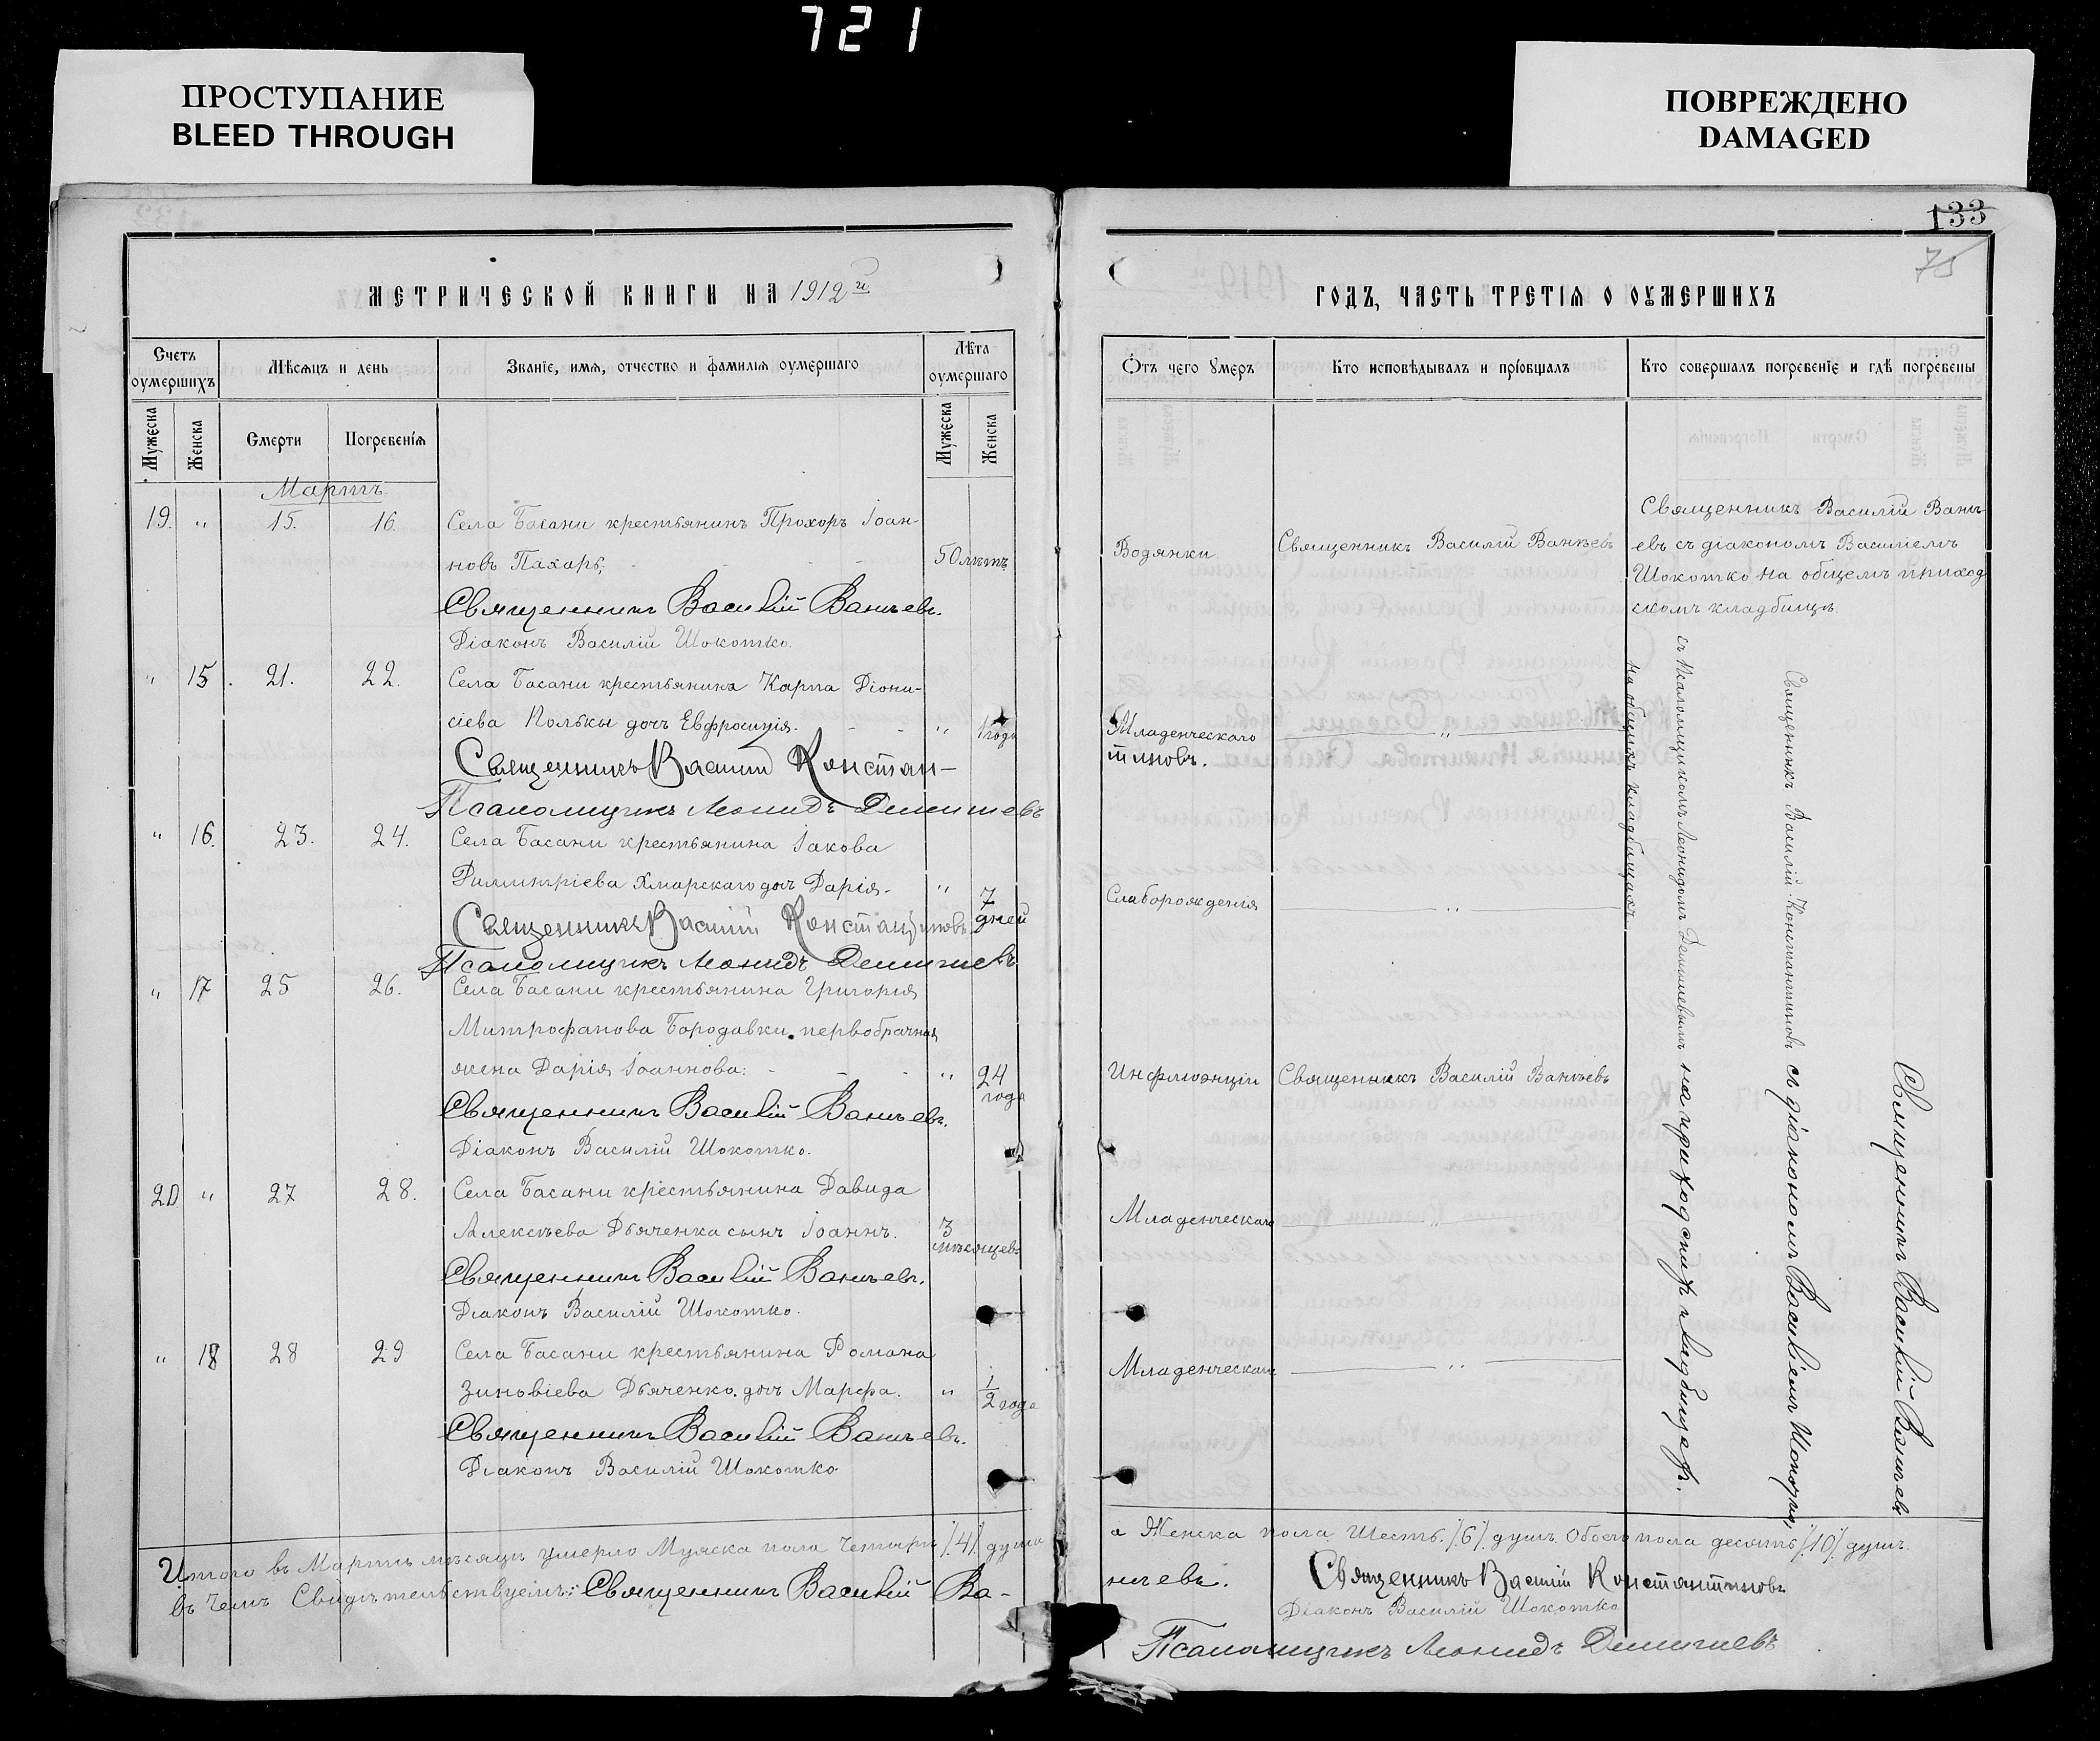 721
ПРОСТУПАНИЕ
BLEED THROUGH
ПОВРЕЖДЕНО
DAMAGED
133
75
МЕТРИЧЕСКОЙ КНИГИ НА 1912 й
ГОДЪ, ЧАСТЬ ТРЕТІЯ О ОУМЕРШИХЪ
Счетъ оумершихъ
Мѣсяцъ и день
Званіе, имя, отчество и фамилія оумершаго
Лѣта оумершаго
Отъ чего умеръ
Кто исповѣдывалъ и пріобщалъ
Кто совершалъ погребеніе и гдѣ погребены
Мужеска
Женска
Смерти
Погребенія
Мужеска
Женска
Мартъ.
19. " 15. 16. Села Басани крестьянинъ Прохоръ Іоан-
новъ Пахарь, 50 лѣтъ
Водянки
Священникъ Василій Ваньевъ
Священникъ Василій Вань-
евъ съ діакономъ Василіемъ
Шокотко на общемъ приход
скомъ кладбищѣ.
Священникъ Василій Ваньевъ.
Діаконъ Василій Шокотко.
" 15. 21. 22. Села Басани крестьянина Карпа Діони-
сіева Кольки дочь Евфросинія. - - " 1 года
Младенческаго "
Священникъ Василій Констан-
тиновъ.
Псаломщикъ Леонидъ Демишевъ
" 16. 23. 24. Села Басани крестьянина Іакова
Димитріева Хмарскаго дочь Дарія. " 7 дней
Слаборожденія "
Священникъ Василій Константиновъ
Псаломщикъ Леонидъ Демишевъ
" 17 25 26. Села Басани крестьянина Григорія
Митрофанова Бородавки первобрачная
жена Дарія Іоаннова: - - - " 24 года
Инфлюэнціи
Священникъ Василій Ваньевъ
Священникъ Василій Ваньевъ.
Діаконъ Василій Шокотко.
20 " 27 28. Села Басани крестьянина Давида
Алексѣева Дьяченка сынъ Іоаннъ. 3 мѣсяцев
Младенческаго "
Священникъ Василій Ваньевъ.
Діаконъ Василій Шокотко.
" 18 28 29 Села Басани крестьянина Романа
Зиновіева Дьяченко. дочь Марфа. " 1/2 года
Младенческаго "
Священникъ Василій Ваньевъ.
Діаконъ Василій Шокотко
Священникъ Василій Константиновъ
съ псаломщикомъ Леонидомъ Демишевымъ
на общихъ кладбищахъ
Священникъ Василій Ваньевъ
съ діакономъ Василіемъ Шокотко,
на приходскихъ кладбищах.
Итого въ Мартѣ мѣсяцѣ умерло Мужска пола Четыре /4/ души
а Женска пола Шесть /6/ душъ. Обоего пола десять /10/ душъ.
Въ чемъ Свидѣтельствуемъ: Священникъ Василій Ва-
ньевъ. Священникъ Василій Константиновъ
Діаконъ Василій Шокотко
Псаломщикъ Леонидъ Демишевъ